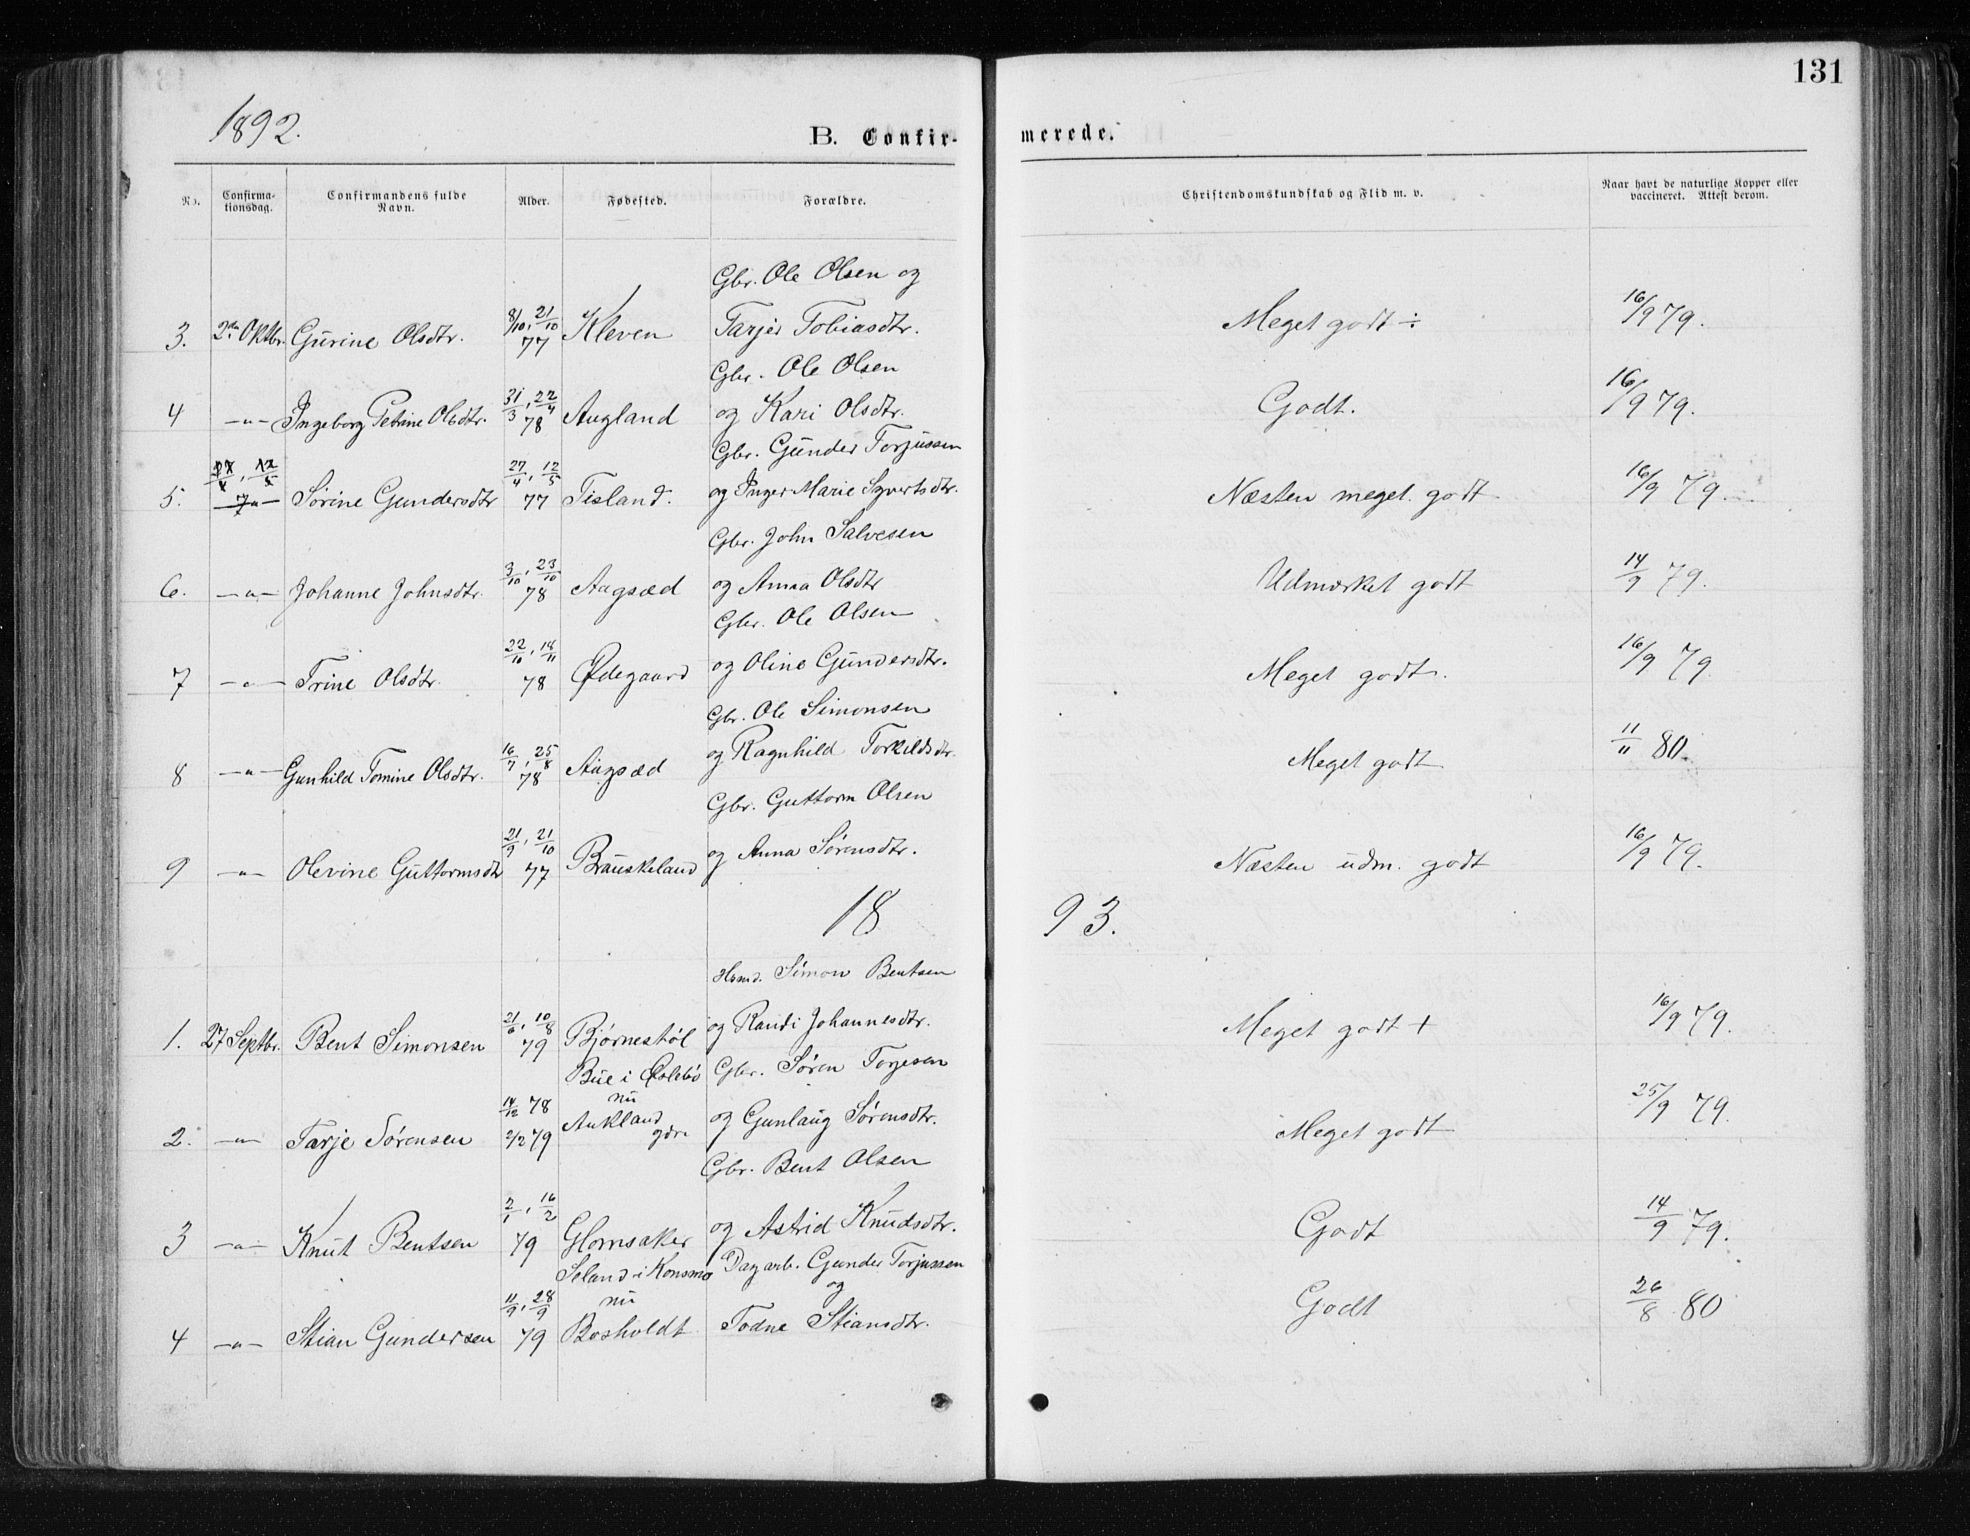 131
1892.
B. Confir-
merede.
No.
Confirma-
tionsdag.
Confirmandens fulde
Navn.
Alder.
Fødested.
Forældre.
Christendomskundskab og Flid m. v.
Naar havt de naturlige Kopper eller
vaccineret. Attest derom.
Gbr. Ole Olsen og
3. 2den Oktbr. Gurine Olsdtr. 8/10, 21/10 77 Kleven Tarjer Tobiasdtr. Meget godt ÷ 16/9 79.
Gbr. Ole Olsen
4 -"- Ingeborg Petrine Olsdtr. 31/3, 22/4 78 Augland og Kari Olsdtr. Godt. 16/9 79.
Gbr. Gunder Torjussen
5. -"- Sørine Gundersdtr 27/4, 12/5 77 Tisland. og Inger Marie Syvertsdtr. Næsten meget godt 16/9 79.
Gbr. John Salvesen
6. -"- Johanne Johnsdtr. 3/10, 23/10 78 Aagsæd og Anna Olsdtr Udmærket godt 14/9 79.
Gbr. Ole Olsen
7 -"- Trine Olsdtr. 22/10, 18/11 78 Ødegaard og Oline Gundersdtr. Meget godt. 16/9 79.
Gbr. Ole Simonsen
8 -"- Gunhild Tomine Olsdtr. 16/7, 25/8 78 Aagsæd og Ragnhild Torkildsdtr. Meget godt 11/11 80.
Gbr. Guttorm Olsen
9 -"- Olevine Guttormsdtr 21/9, 21/10 77 Brauskeland og Anna Sørensdtr. Næsten udm. godt 16/9 79.
18 93.
Husmd. Simon Bentsen
1. 27 Septbr. Bent Simonsen 21/6, 10/8 79 Bjørnestøl og Randi Johannesdtr. Meget godt + 16/9 79.
Bue i Øslebø Gbr. Søren Torjesen
nu
2. -"- Tarje Sørensen 14/12 78 2/2 79 Aukland ydre og Gunlaug Sørensdtr. Meget godt 25/9 79.
Gbr. Bent Olsen
3 -"- Knut Bentsen 2/1, 16/2 79 Glomsaker og Astrid Knudsdtr. Godt 14/9 79.
Seland i Konsmo Dagarb. Gunder Torjussen
nu og
4 -"- Stian Gundersen 11/9, 28/9 79 Bosholdt Todne Stiansdtr. Godt 26/8 80